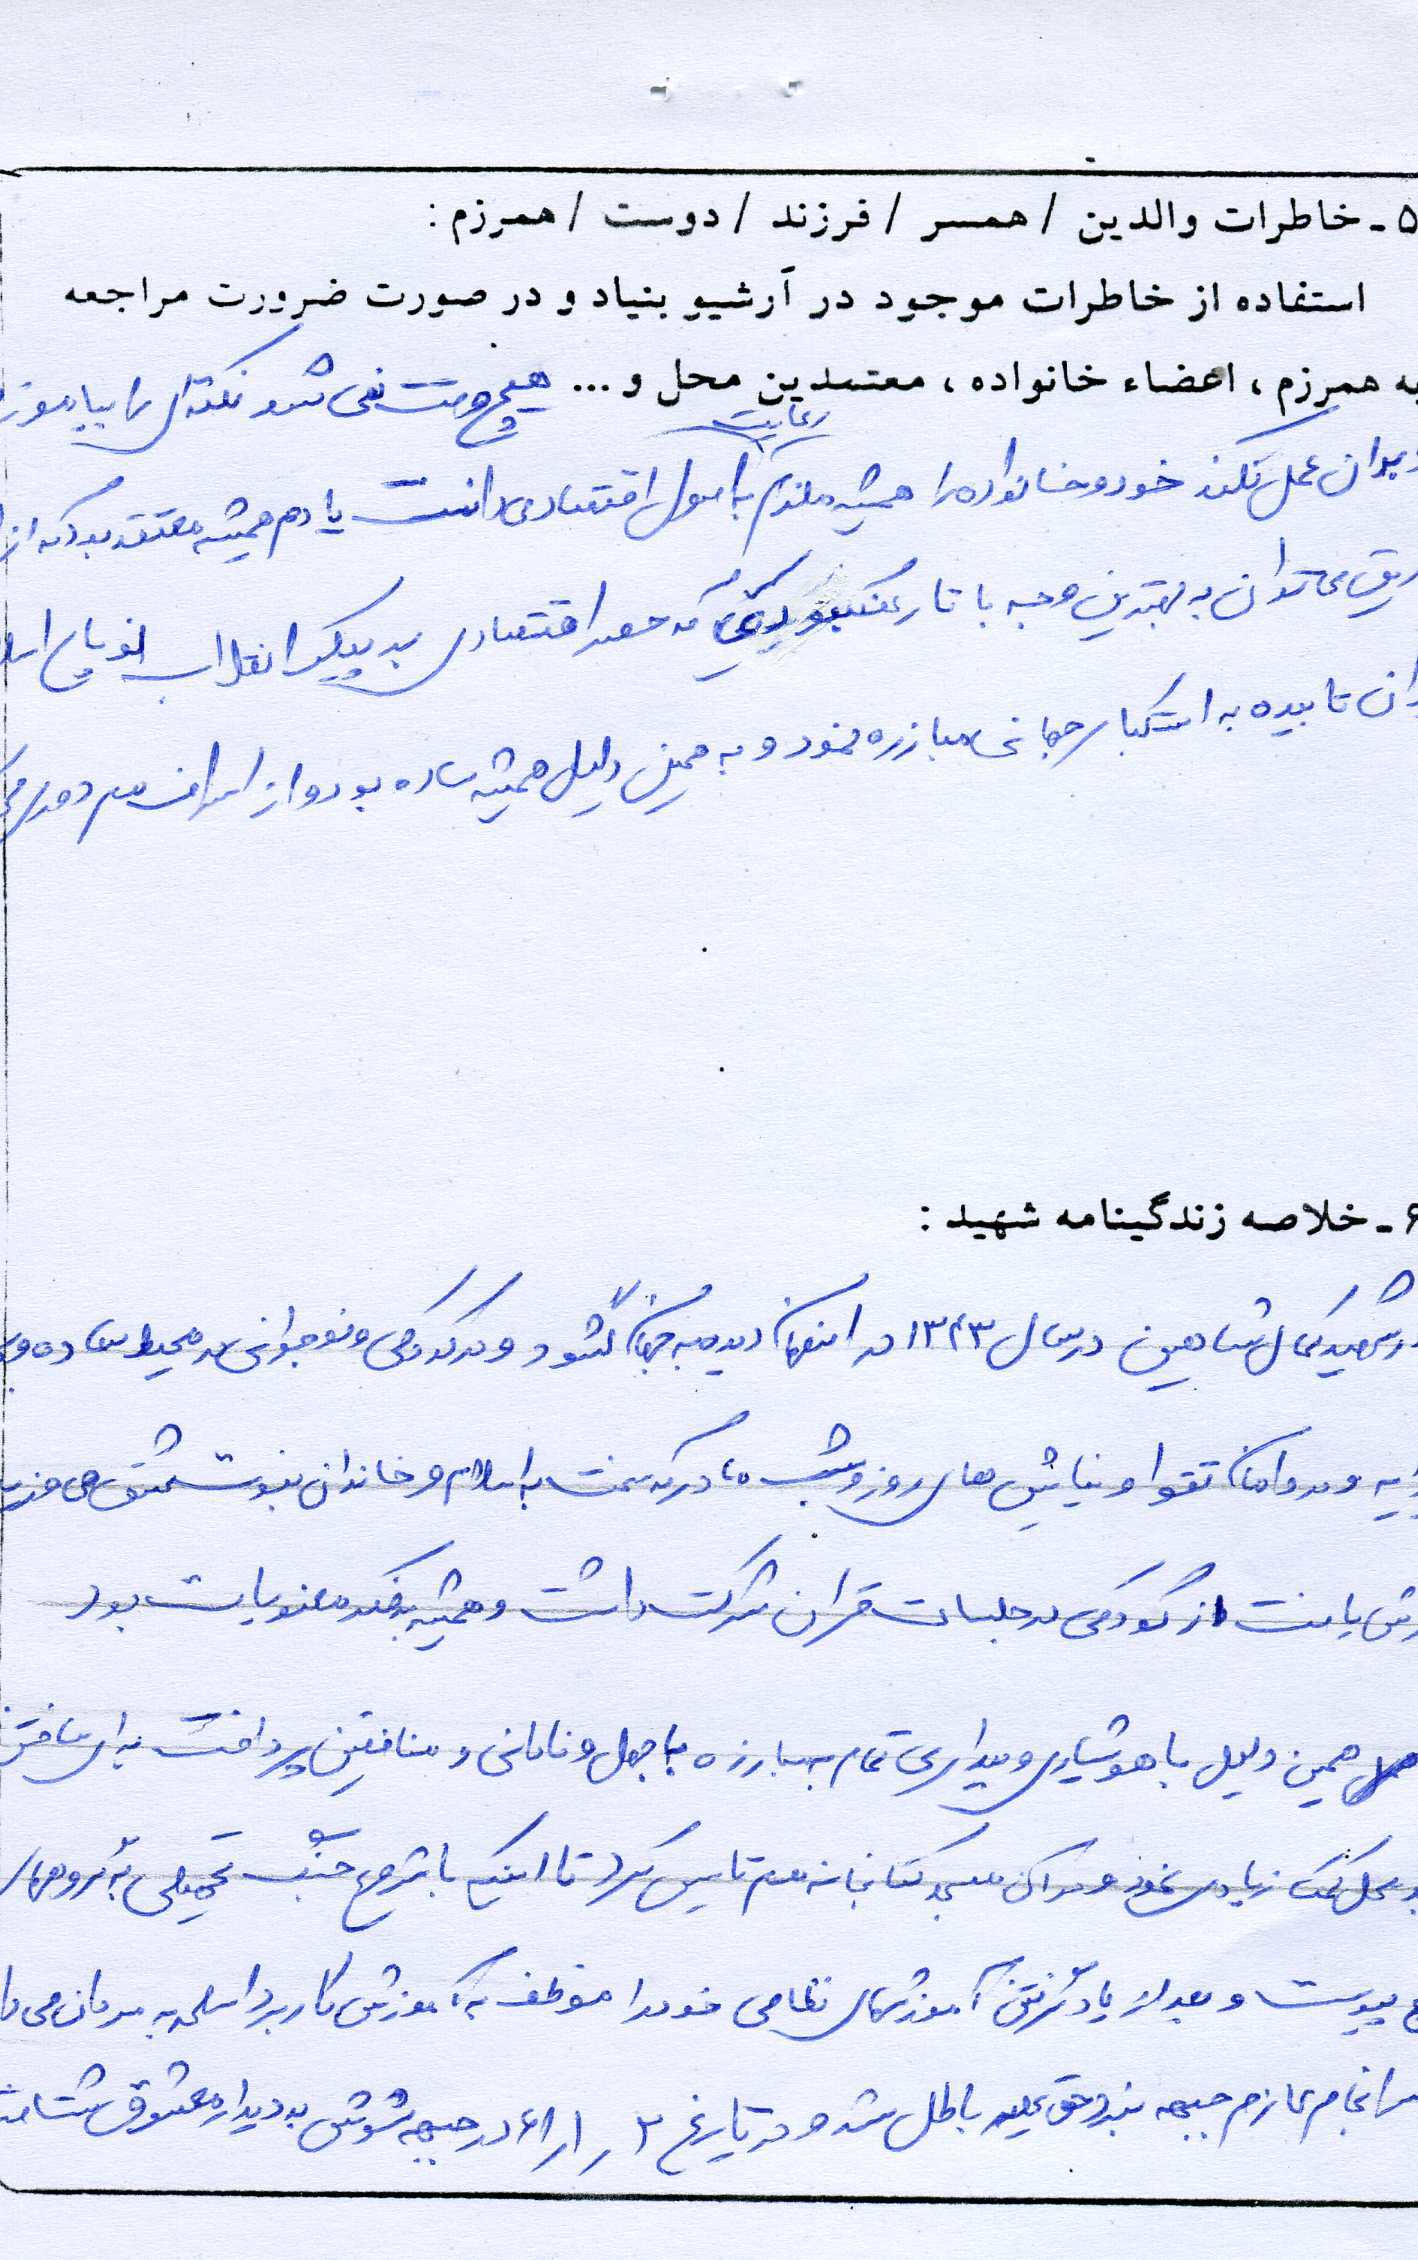 ۵ ـ خاطرات والدین / همسر / فرزند / دوست / همرزم :
استفاده از خاطرات موجود در آرشیو بنیاد و در صورت ضرورت مراجعه
به همرزم ، اعضاء خانواده ، معتمدین محل و ... هیچ وقت نمی شد نکته ای را بیاموزد
بدان عمل نکند خود و خانواده را همیشه ملزم به رعایت اصول اقتصادی دانست یادم همیشه معتقد بود که از
می توان به بهترین وجه با تار عنکبوتی که حصر اقتصادی بر پیکر انقلاب نوپای
تابیده به استکبار جهانی مبارزه نمود و به همین دلیل همیشه ساده بود و از اسراف هم دوری
شهید کمال شاهین در سال ۱۳۴۳ در اصفهان دیده به جهان گشود و در کودکی و نوجوانی در محیط ساده و
و در دامان تقوا و نیایش های روز و شب مادر که سخت به اسلام و خاندان نبوت عشق می ورزید
پرورش یافت از کودکی در جلسات قرآن شرکت داشت و همیشه به فکر معنویات بود
همین دلیل با هوشیاری و بیداری تمام به مبارزه با جهل و نادانی و منافقین پرداخت برای ساختن
محل کمک زیادی نمود و در آن مسجد کتابخانه هم تاسیس کرد تا اینکه با شروع جنگ تحمیلی به گروههای
پیوست و بعد از یاد گرفتن آموزشهای نظامی خود را موظف به آموزش کاربرد اسلحه به مردان می
سرانجام عازم جبهه نبرد حق علیه باطل شد و در تاریخ ۲ ر ۱ ر ۶۱ در جبهه شوش به دیدار معشوق شتافت
۶ ـ خلاصه زندگینامه شهید :